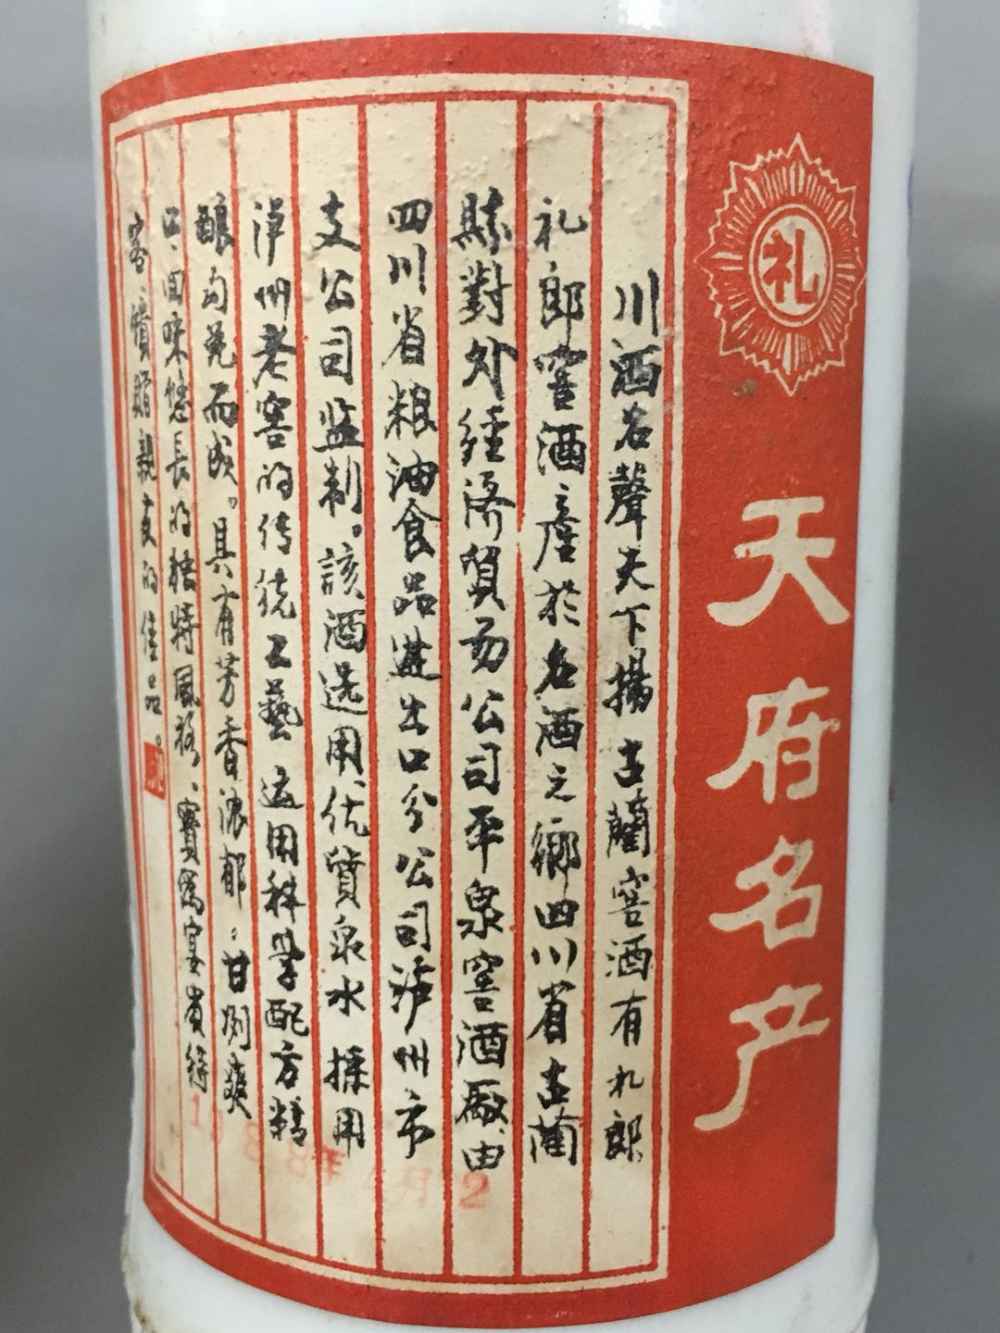 礼
天府名产
川酒名聲天下揚古藺窖酒有礼郎
礼郎窖酒產於名酒之鄉四川省古藺
縣對外經济貿易公司平泉窖酒廠、由
四川省粮油食品進出口分公司泸州市
支公司监制。該酒选用、优質泉水採用
泸州老窖的传统工藝运用科学配方精
酿勾兑而成。具有芳香浓郁、甘冽爽
口、回味悠長的独特风格、實为宴賓待
客、馈贈親友的佳品。
1988年 月2